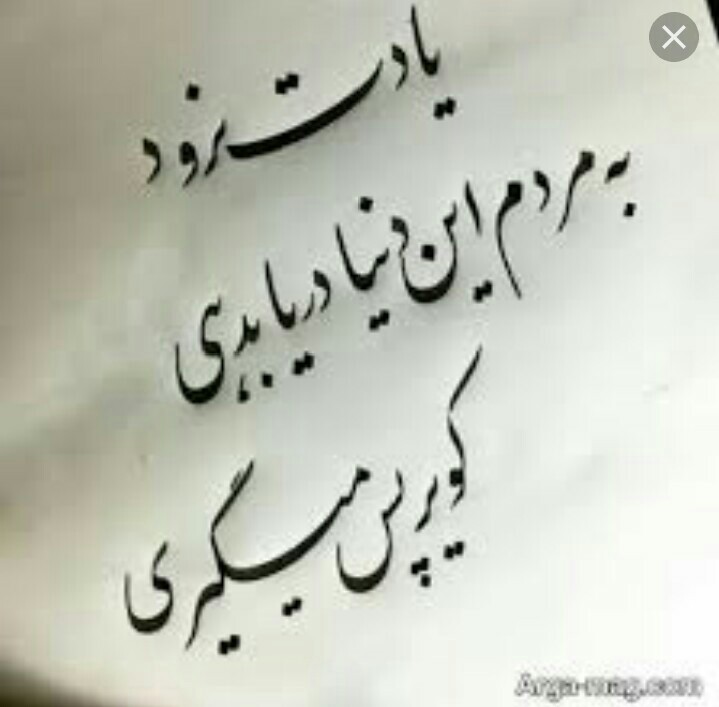 یادت نرود
به مردم این دنیا دریا بدهی
کویر پس میگیری
Arga-mag.com